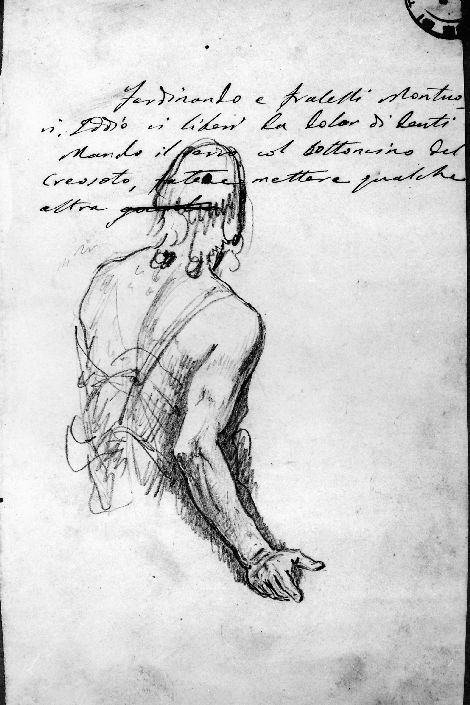 Ferdinando e fratelli Montuo-
ri. Iddio vi liberi da dolor di denti
Mando il servo col bottoncino del
Creosoto, fatene mettere qualche
altra